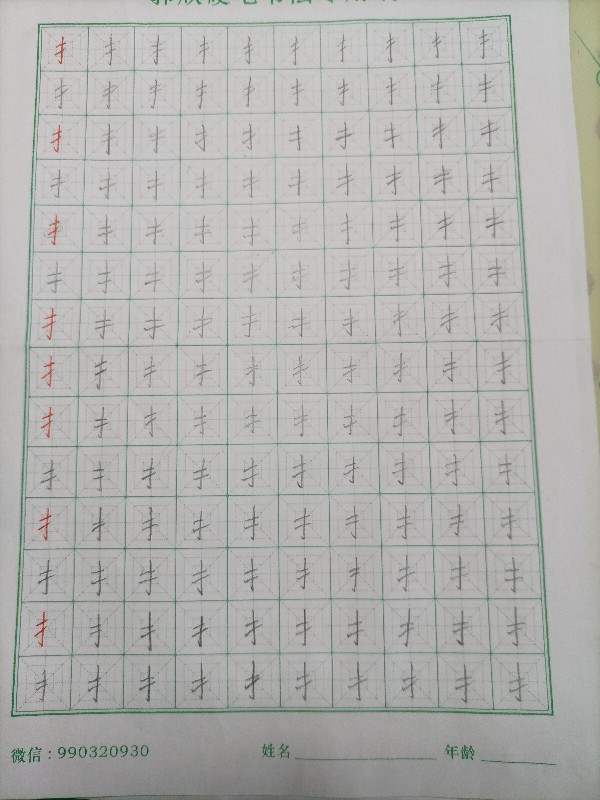 扌扌扌扌扌扌扌扌扌扌
扌扌扌扌扌扌扌扌扌扌
扌扌扌扌扌扌扌扌扌扌
扌扌扌扌扌扌扌扌扌扌
扌扌扌扌扌扌扌扌扌扌
扌扌扌扌扌扌扌扌扌扌
扌扌扌扌扌扌扌扌扌扌
扌扌扌扌扌扌扌扌扌扌
扌扌扌扌扌扌扌扌扌扌
扌扌扌扌扌扌扌扌扌扌
扌扌扌扌扌扌扌扌扌扌
扌扌扌扌扌扌扌扌扌扌
扌扌扌扌扌扌扌扌扌扌
扌扌扌扌扌扌扌扌扌扌
微信：990320930 姓名 年龄